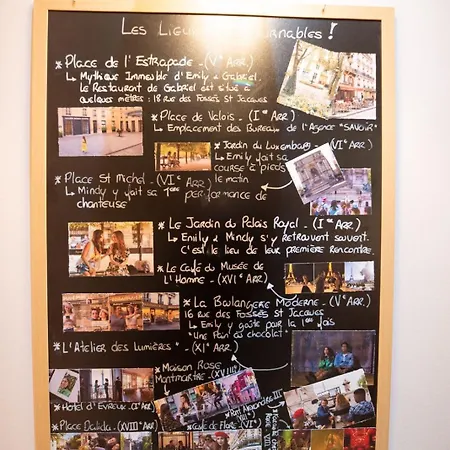 Les Lieux        nables !
* Place de l'Estrapade - (Vᵉ Arr.)
↳ Mythique Immeuble d'Emily & Gabriel.
Le Restaurant de Gabriel est situé à
quelques mètres : 18 rue des Fossés St Jacques
* Place de Valois - (Iᵉʳ Arr.)
↳ Emplacement des Bureaux de l'Agence "SAVOIR"
* Jardin du Luxembourg - (VIᵉ Arr.)
↳ Emily fait sa
course à pieds
le matin
* Place St Michel - (VIᵉ Arr.)
↳ Mindy y fait sa 1ère performance de
chanteuse
* Le Jardin du Palais Royal - (Iᵉʳ Arr.)
↳ Emily & Mindy s'y retrouvent souvent.
C'est le lieu de leur première rencontre.
* Le Café du Musée de
L'Homme - (XVIᵉ Arr)
* La Boulangerie Moderne - (Vᵉ Arr.)
16 rue des Fossés St Jacques
↳ Emily y goûte pour la 1ère fois
"Un Pain au chocolat"
* L'Atelier des Lumières" - (XIᵉ Arr)
* Maison Rose
Montmartre - (XVIIIᵉ)
* Hotel d'Evreux - (Iᵉʳ Arr)
* Pont Alexandre III
* Place Dalida - (XVIIIᵉ Arr)
* Café de Flore - (VIᵉ)